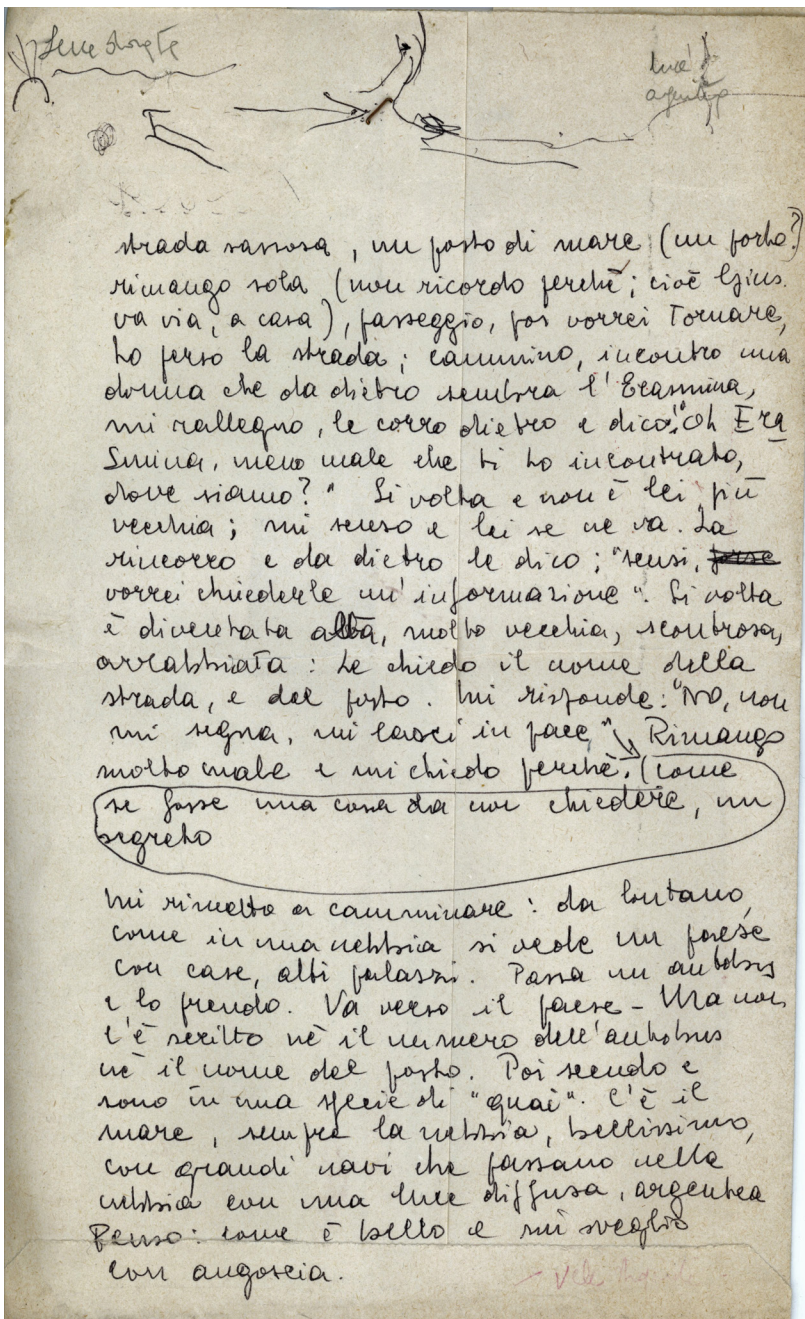 luce
strada sassosa, un posto di mare (un porto?)
rimango sola (non ricordo perchè; cioè Gius.
va via, a casa), passeggio, poi vorrei Tornare,
ho perso la strada; cammino, incontro una
donna che da dietro sembra l'Erasmina,
mi rallegro, le corro dietro e dico: "Oh Era
Smina, meno male che ti ho incontrato,
dove siamo?" Si volta e non è lei, più
vecchia; mi scuso e lei se ne va. La
rincorro e da dietro le dico; "scusi, forse
vorrei chiederle un'informazione". Si volta
è diventata alta, molto vecchia, scontrosa,
arrabbiata: Le chiedo il nome della
strada, e del posto. Mi risponde: "No, non
mi segua, mi lasci in pace" Rimango
molto male e mi chiedo perchè. (come
se fosse una cosa da non chiedere, un
segreto
Mi rimetto a camminare: da lontano,
come in una nebbia si vede un paese
con case, alti palazzi. Passa un autobus
e lo prendo. Va verso il paese - Ma non
c'è scritto nè il numero dell'autobus
nè il nome del posto. Poi scendo e
sono in una specie di "quai". C'è il
mare, sempre la nebbia, bellissimo,
con grandi navi che passano nella
nebbia con una luce diffusa, argentea
Penso: come è bello e mi sveglio
con angoscia.